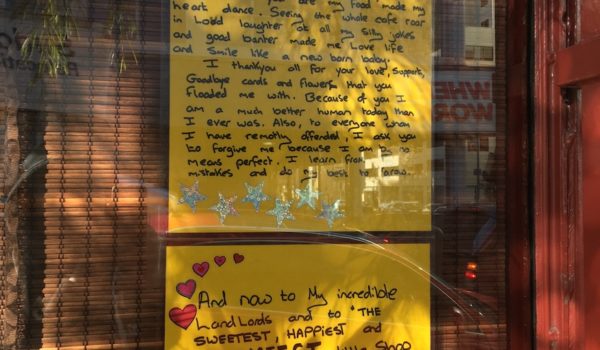 you are my food made my
heart dance. Seeing the whole cafe roar
in Loud laughter at all my silly jokes
and good banter made me Love life
and smile like a new born baby.
I thankyou all for your love, Supports,
Goodbye cards and flowers that you
Flooded me with. Because of you I
am a much better human today than
I ever was. Also, to everyone whom
I have remotly offended, I ask you
to forgive me because I am by no
means perfect. I learn from
mistakes and do my best to Grow.
And now to My incredible
LandLords and to "THE
SWEETEST, HAPPIEST and
Little Shop
WHE
WOR